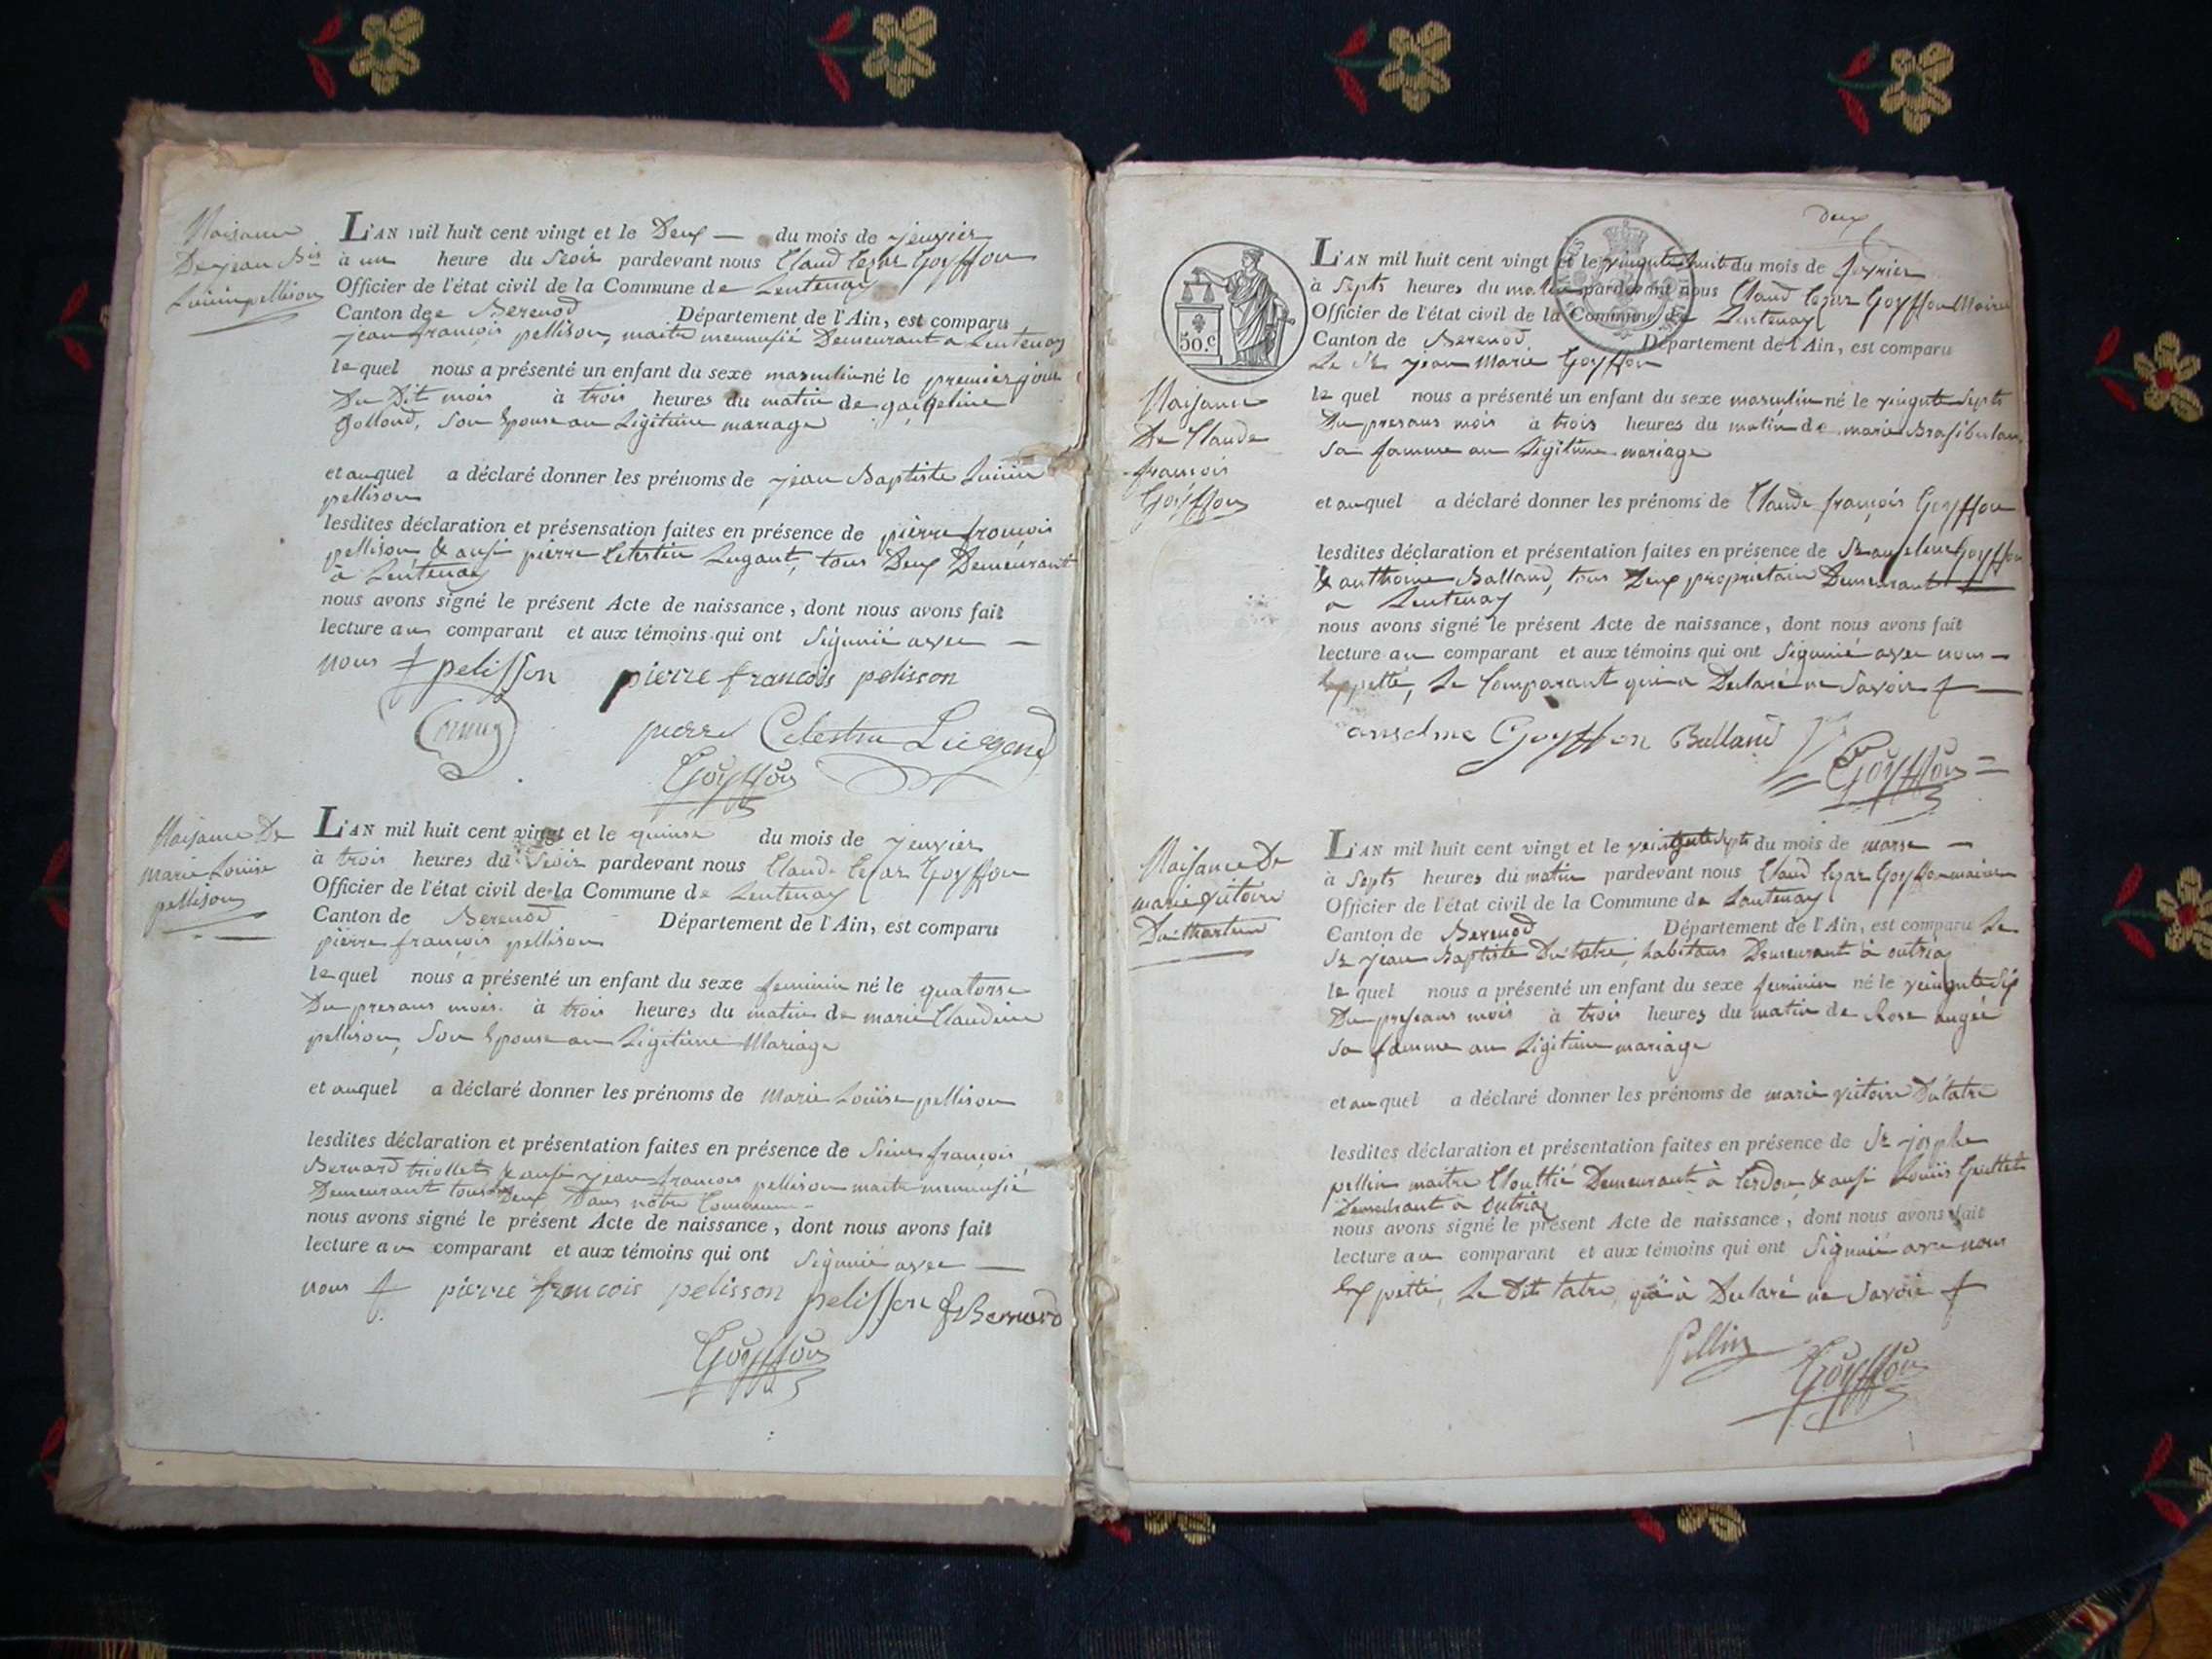 Naisance
De jean Bte
Luiin pellison
L'AN mil huit cent vingt et le Deux — du mois de jenvier
à un heure du Seoir pardevant nous Claud Cezar Goyffon
Officier de l'état civil de la Commune de Lentenay
Canton de Berenod Département de l'Ain, est comparu
jean françois pellison, maite mennusié Demeurant a Lentenay
le quel nous a présenté un enfant du sexe masculin né le premier jour
Du Dit mois à trois heures du matin de
Son Epouse an Ligitime mariage
et auquel a déclaré donner les prénoms de jean Baptiste Luiin
pellison
lesdites déclaration et présensation faites en présence de pierre françois
pellison & ausi pierre Celestin Lugant, tous Deux Demeurant
à Lentenay
nous avons signé le présent Acte de naissance, dont nous avons fait
lecture au comparant et aux témoins qui ont Signnié avec —
nous pelisson pierre francois pelisson
pierre Celestin
Goyffon
Naisance De
marie Louiise
pellison
L'AN mil huit cent vingt et le quinse du mois de jenvier
à trois heures du Seoir pardevant nous Claude Cezar Goyffon
Officier de l'état civil de la Commune de Lentenay
Canton de Berenod Département de l'Ain, est comparu
pierre françois pellison
le quel nous a présenté un enfant du sexe feminin né le quatorse
Du presans mois à trois heures du matin de marie Claudine
pellison, Son Epouse an Ligitime Mariage
et auquel a déclaré donner les prénoms de Marie Louiise pellison
lesdites déclaration et présentation faites en présence de Sieur françois
Bernard triollet & ausi jean françois pellison maite mennusié
Demeurant tous Deux Dans notre Commune
nous avons signé le présent Acte de naissance, dont nous avons fait
lecture au comparant et aux témoins qui ont Signnié avec —
nous pierre francois pelisson pelisson Bernard
Goyffon
Deux
50.c
Naisance
De Claude
françois
Goyffon
L'AN mil huit cent vingt et le vingnte huit du mois de fevrier
à Septs heures du matin pardevant nous Claud Cezar Goyffon Maire
Officier de l'état civil de la Commune de Lentenay
Canton de Berenod Département de l'Ain, est comparu
Le Sr jean Marie Goyffon
le quel nous a présenté un enfant du sexe masculin né le vingnte Septs
Du presans mois à trois heures du matin de marie
Sa famme an Ligitime mariage
et auquel a déclaré donner les prénoms de Claude françois Goyffon
lesdites déclaration et présentation faites en présence de Sr anselme Goyffon
& anthoine Balland, tous Deux proprietaire Demeurant
a Lentenay
nous avons signé le présent Acte de naissance, dont nous avons fait
lecture au comparant et aux témoins qui ont Signnié avec nous —
Exppetté, Le Comparant qui a Declaré ne Savoir
anselme Goyffon Balland
Goyffon
Naisance De
marie victoire
L'AN mil huit cent vingt et le veingnte Septs du mois de marse —
à Septs heures du matin pardevant nous Claud Cezar Goyffon maire
Officier de l'état civil de la Commune de Lantenay
Canton de Berenod Département de l'Ain, est comparu Le
Sr jean Baptiste Dutatre, habitans Demeurant à outria
le quel nous a présenté un enfant du sexe feminin né le veingnte Six
Du presans mois à trois heures du matin de Rose
Sa famme an Ligitime mariage
et auquel a déclaré donner les prénoms de marie victoire Dutatre
lesdites déclaration et présentation faites en présence de Sr josphe
pellin maitre Clouttié Demeurant à Cerdon, & ausi Louiis Guillet
Demeurant à outria
nous avons signé le présent Acte de naissance, dont nous avons fait
lecture au comparant et aux témoins qui ont Signnié avec nous
Exppetté, Le Dit tatre, qui à Declaré ne Savoir
Pellin
Goyffon